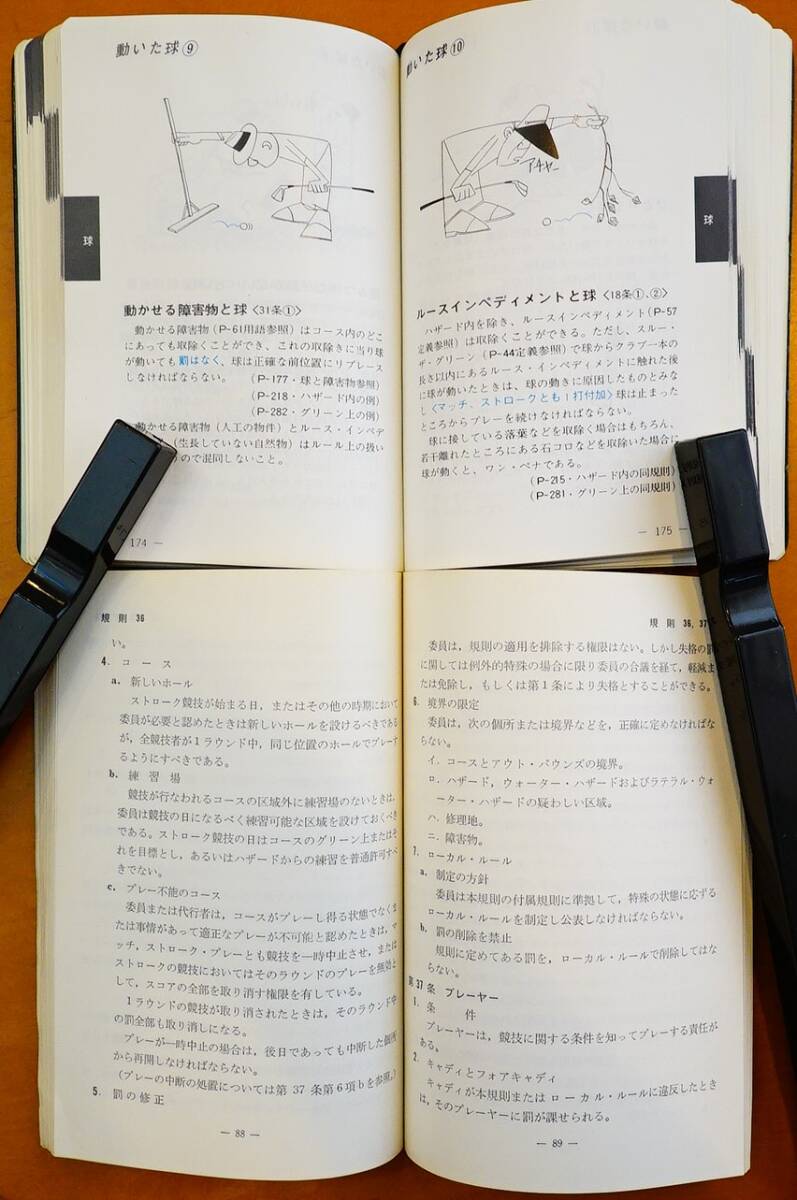 動いた球⑨
球
動かせる障害物と球〈31条①〉
動かせる障害物(P-61用語参照)はコース内のどこ
にあっても取除くことができ、これの取除きに当り球
が動いても罰はなく、球は正確な前位置にリプレース
しなければならない。 (P-177・球と障害物参照)
(P-218・ハザード内の例)
(P-282・グリーン上の例)
動かせる障害物(人工の物件)とルース・インペデ
(生長していない自然物)はルール上の扱い
ので混同しないこと。
174 —
動いた球⑩
アチャー
球
ルースインペディメントと球〈18条①、②〉
ハザード内を除き、ルースインペディメント(P-57
定義参照)は取除くことができる。ただし、スルー・
ザ・グリーン(P-44定義参照)で球からクラブ一本の
長さ以内にあるルース・インペディメントに触れた後
に球が動いたときは、球の動きに原因したものとみな
し〈マッチ、ストロークとも1打付加〉球は止まった
ところからプレーを続けなければならない。
球に接している落葉などを取除く場合はもちろん、
若干離れたところにある石コロなどを取除いた場合に
球が動くと、ワン・ペナである。
(P-215・ハザード内の同規則)
(P-281・グリーン上の同規則)
— 175 —
規則 36
い。
4. コース
a. 新しいホール
ストローク競技が始まる日，またはその他の時期において
委員が必要と認めたときは新しいホールを設けるべきである
が，全競技者が1ラウンド中，同じ位置のホールでプレーす
るようにすべきである。
b. 練習場
競技が行なわれるコースの区域外に練習場のないときは，
委員は競技の日になるべく練習可能な区域を設けておくべき
である。ストローク競技の日はコースのグリーン上またはそ
れを目標とし，あるいはハザードからの練習を普通許可すべ
きでない。
c. プレー不能のコース
委員または代行者は，コースがプレーし得る状態でなくま
たは事情があって適正なプレーが不可能と認めたときは，マ
ッチ，ストローク・プレーとも競技を一時中止させ，または
ストロークの競技においてはそのラウンドのプレーを無効と
して，スコアの全部を取り消す権限を有している。
1ラウンドの競技が取り消されたときは，そのラウンド中
の罰全部も取り消しになる。
プレーが一時中止の場合は，後日であっても中断した個所
から再開しなければならない。
(プレーの中断の処置については第 37 条第6項bを参照。)
5. 罰の修正
— 88 —
規則 36, 37
委員は，規則の適用を排除する権限はない。しかし失格の罰
に関しては例外的特殊の場合に限り委員の合議を経て，軽減ま
たは免除し，もしくは第1条により失格とすることができる。
6. 境界の限定
委員は，次の個所または境界などを，正確に定めなければな
らない。
イ. コースとアウト・バウンズの境界。
ロ. ハザード，ウォーター・ハザードおよびラテラル・ウォ
ーター・ハザードの疑わしい区域。
ハ. 修理地。
ニ. 障害物。
7. ローカル・ルール
a. 制定の方針
委員は本規則の付属規則に準拠して，特殊の状態に応ずる
ローカル・ルールを制定し公表しなければならない。
b. 罰の削除を禁止
規則に定めてある罰を，ローカル・ルールで削除してはな
らない。
第37条 プレーヤー
1. 条件
プレーヤーは，競技に関する条件を知ってプレーする責任が
ある。
2. キャディとフォアキャディ
キャディが本規則または ローカル・ルールに違反したとき
は，そのプレーヤーに罰が課せられる。
— 89 —